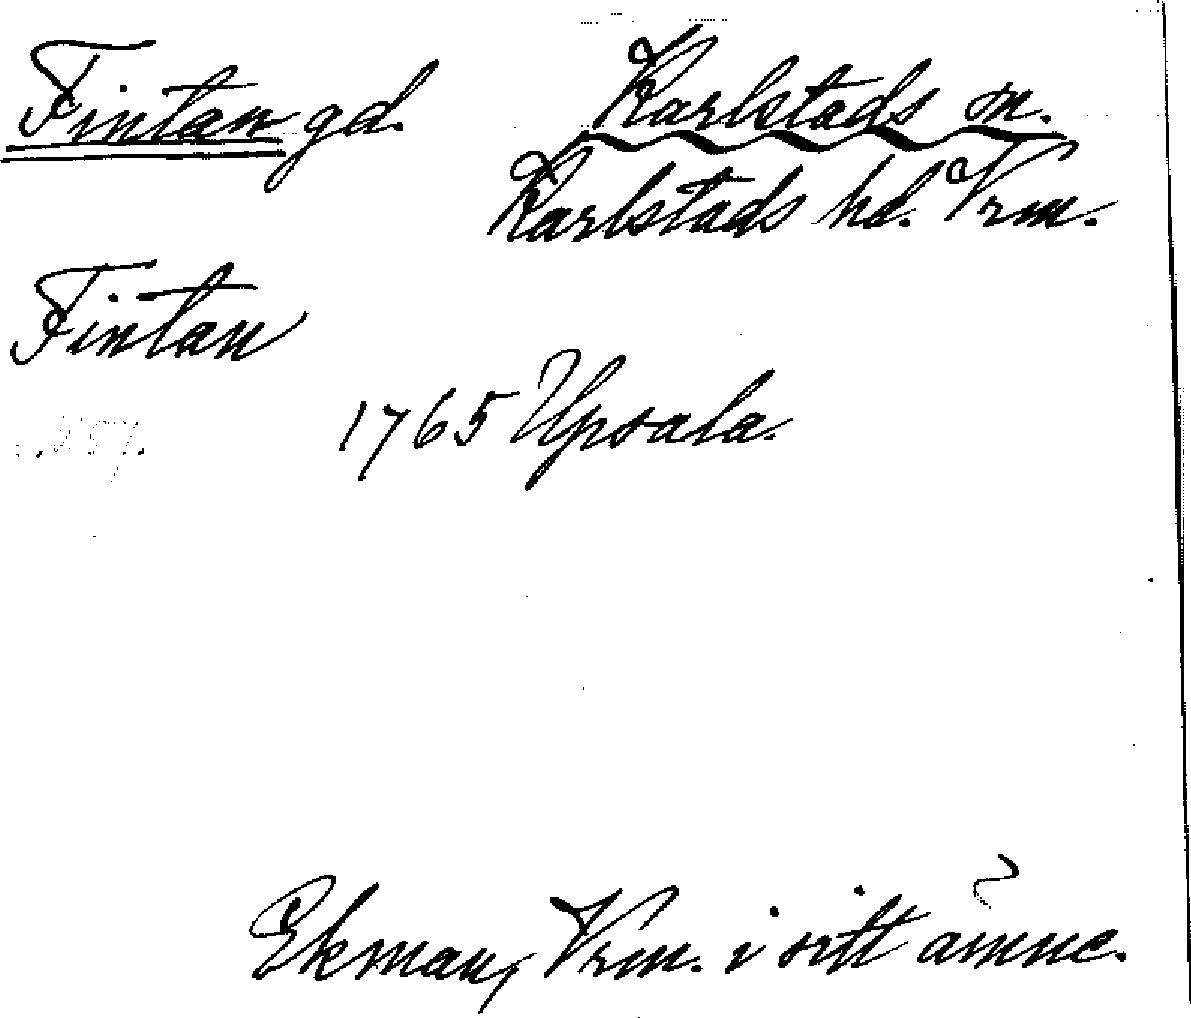 Fintan gd. Karlstads sn.
Karlstads hd. Vrm.
Fintan
1765 Upsala.
Ekman, Vrm. i sitt ämne.